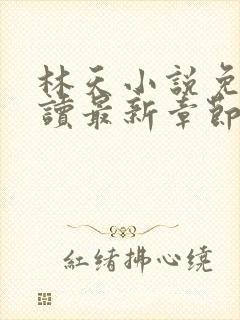 林天小說免
讀最新章節
紅绪拂心繞